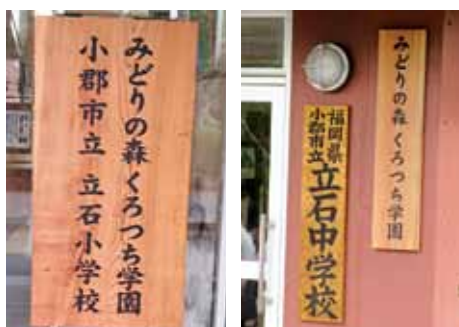 みどりの森くろつち学園
小郡市立 立石小学校
みどりの森 くろつち学園
福岡県
小郡市立
立石中学校